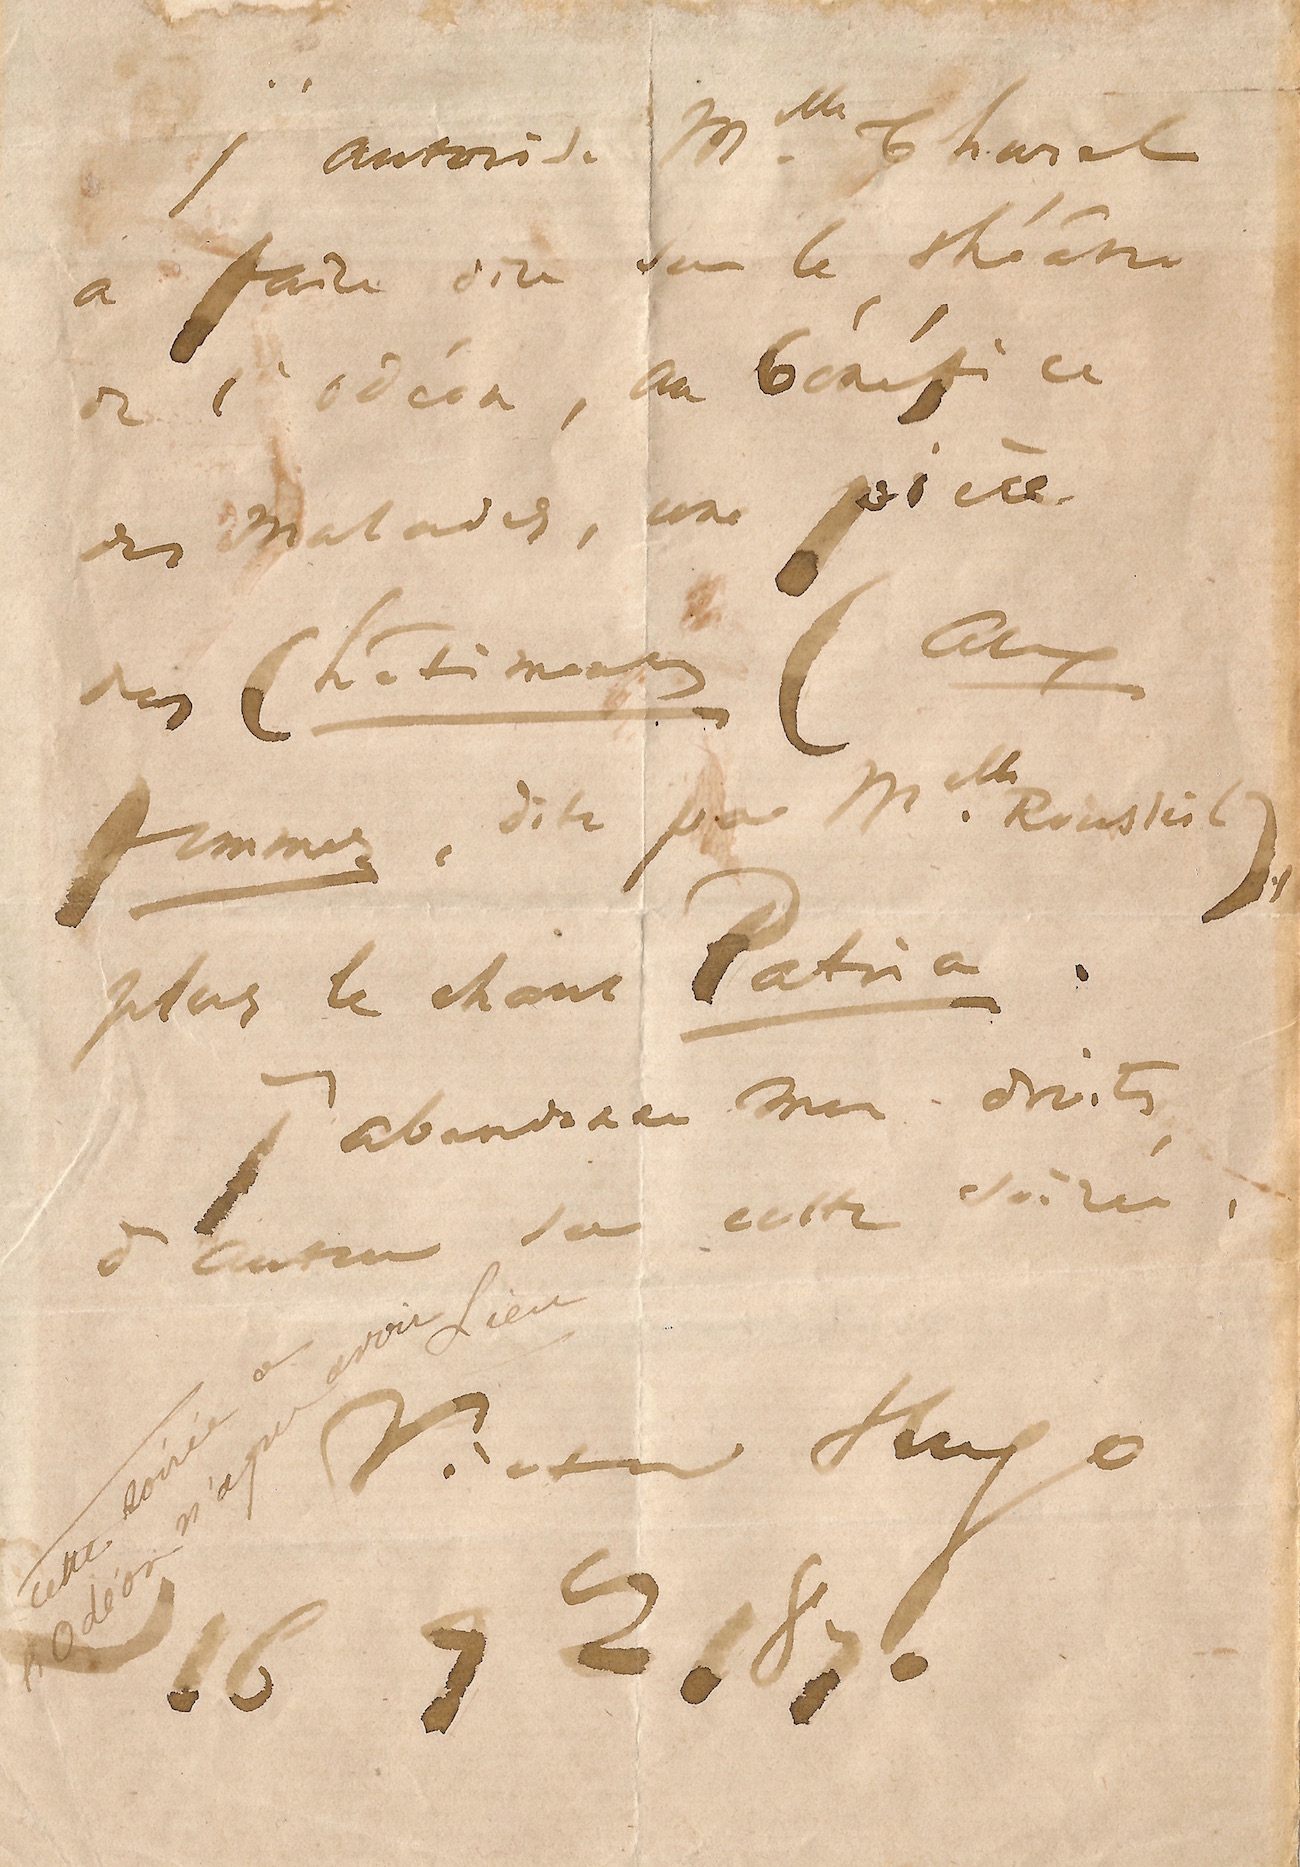 j'autorise Melle Thuret
a faire dire sur le théâtre
de l'odéon, au bénéfice
des malades, une pièce
des Châtiments (Aux
femmes, dite par Melle Rousseil),
plus le chant Patria.
J'abandonne mes droits
d'auteur sur cette soirée.
Victor Hugo
16 9bre 1870
cette soirée a
l'Odéon n'a pu avoir lieu